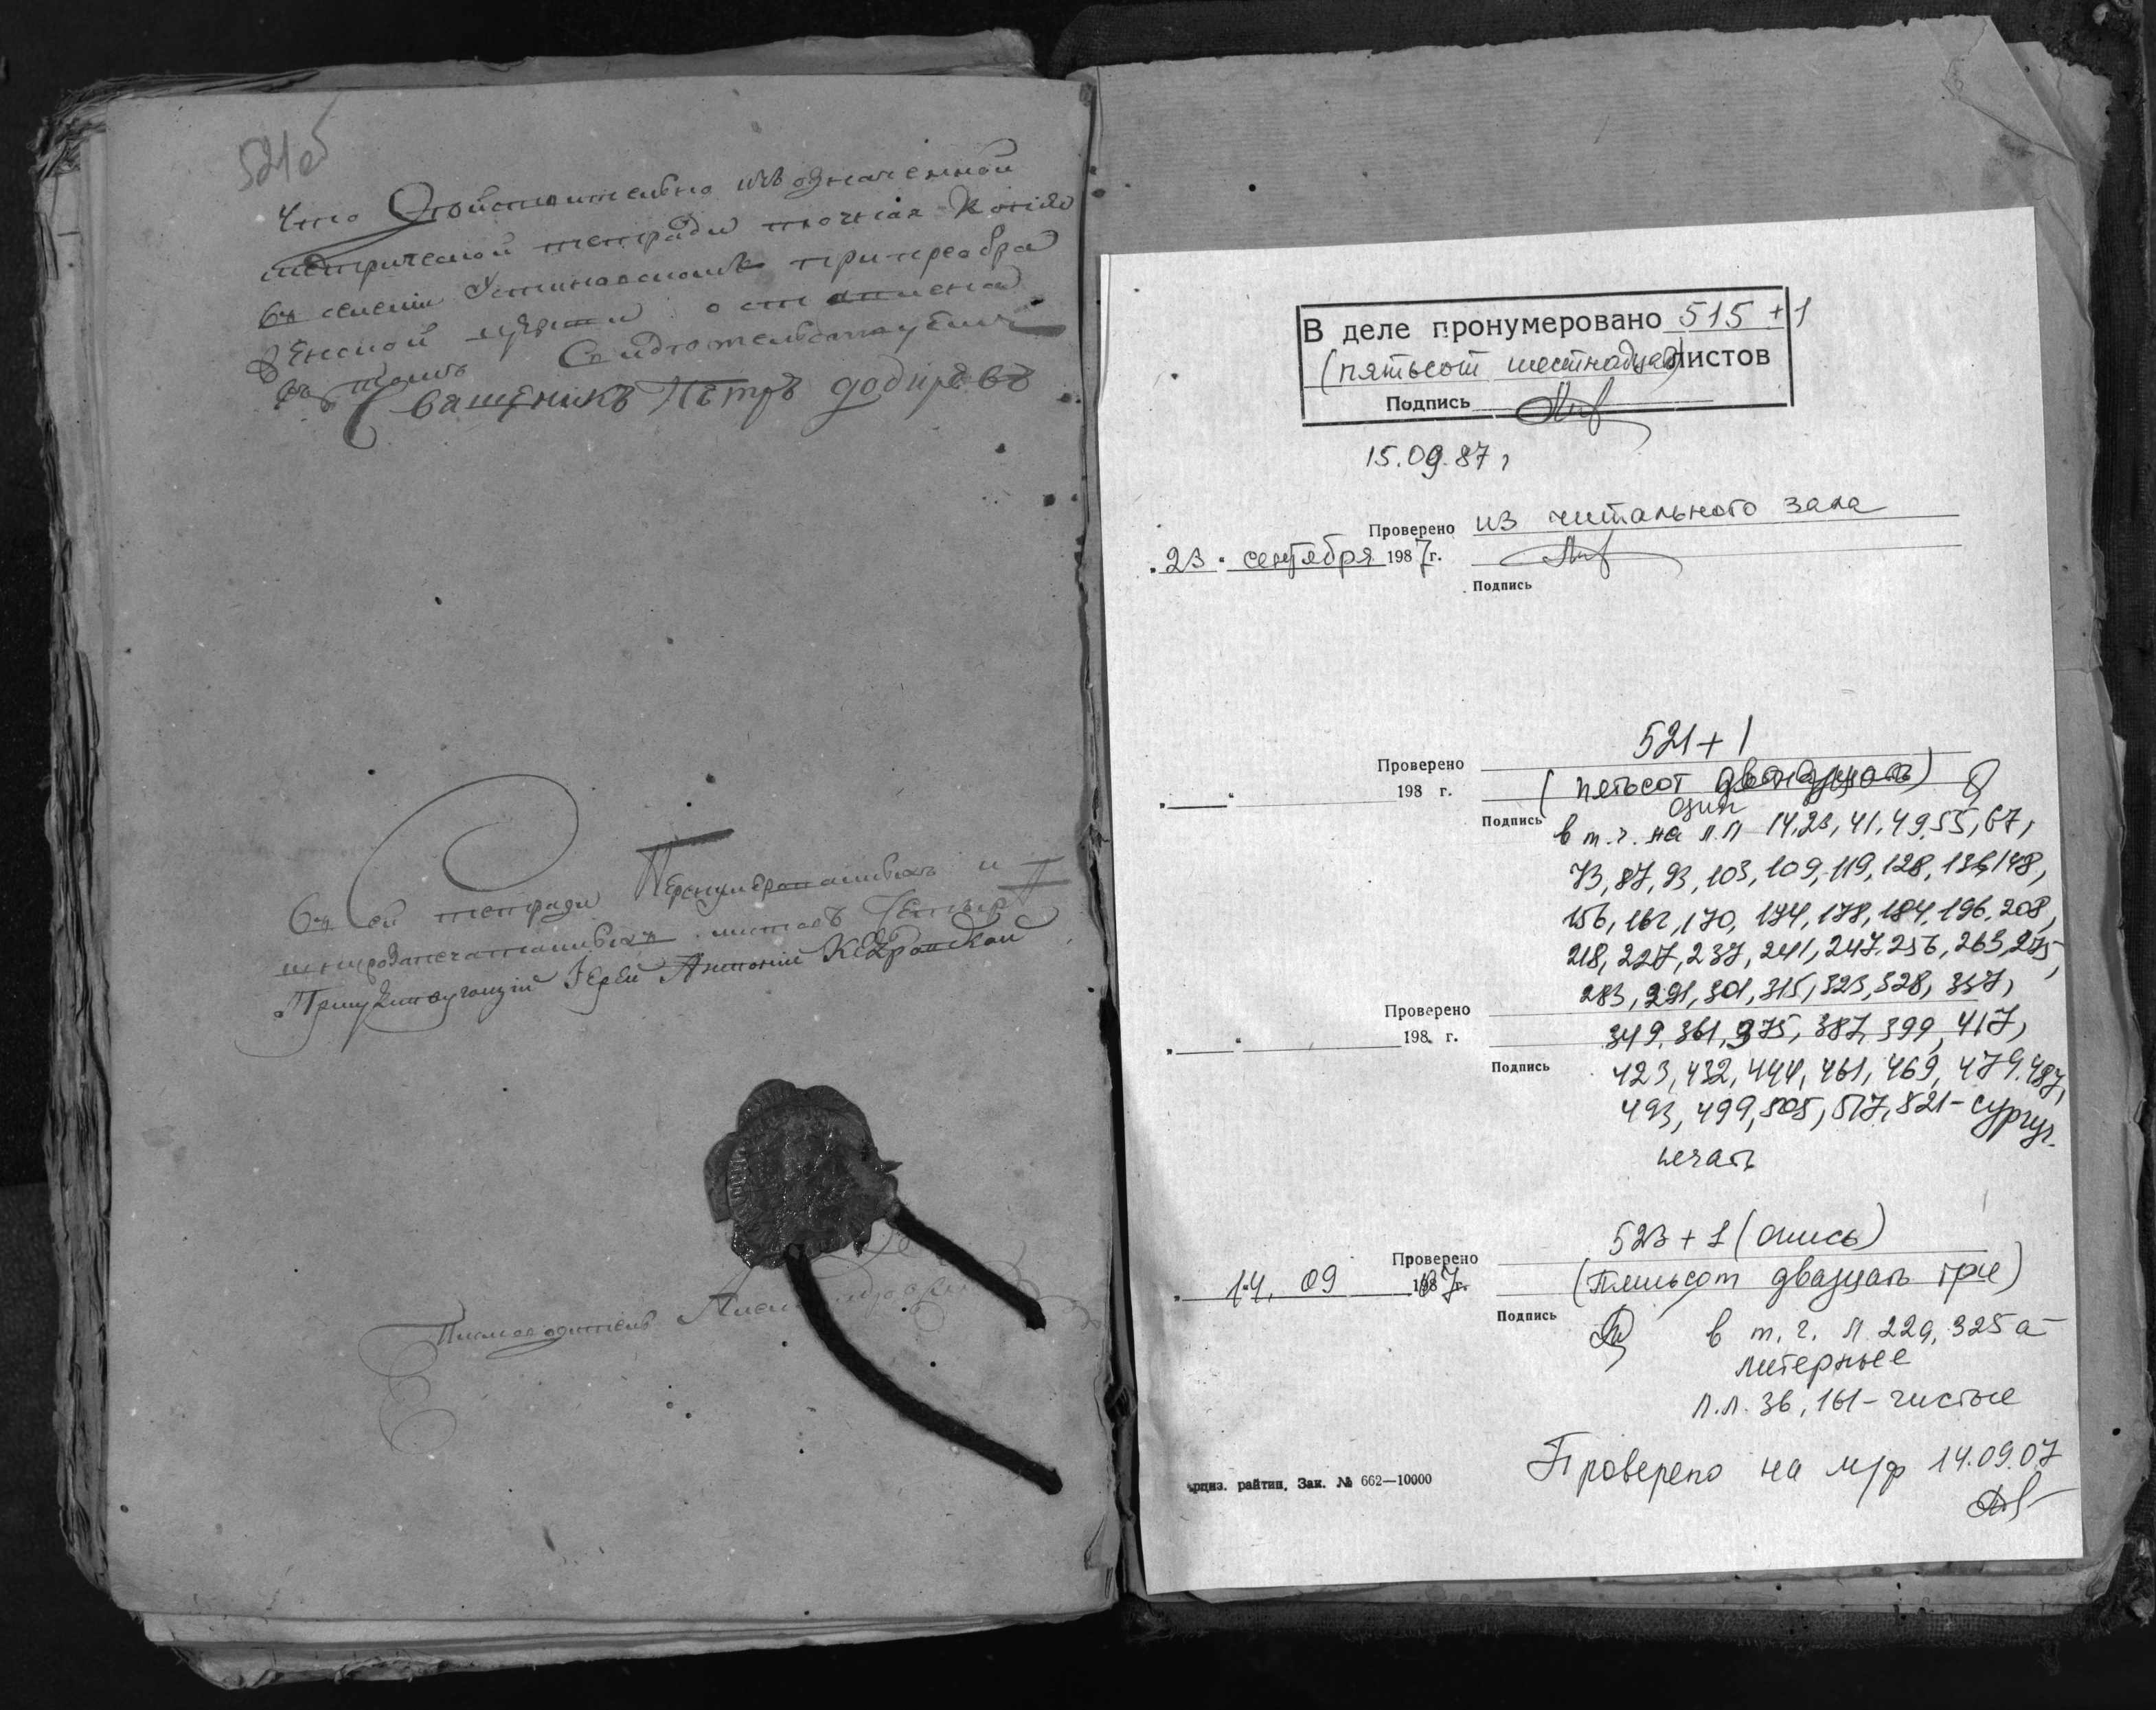 521об
Что Действительно изъ означенной
метрической тетради точная Копія
въ селеніи Устиновскомъ при преобра
женской церкви оставлена
въ томъ Свидетельствуемъ
Священикъ Петръ
Въ сей тетради Перенумерованныхъ и
шнурозапечатанныхъ листовъ
Присудствующій Іерей Антоній
Письмоводитель
В деле пронумеровано 515 + 1
(пятьсот шестнадцать) листов
Подпись
15.09.87 г
Проверено из читального зала
„23“ сентября 1987 г.
Подпись
521 + 1
Проверено
198 г. (пятьсот двадцать)
один
Подпись в т.ч. на л.л 14, 23, 41, 49, 55, 67,
73, 87, 93, 103, 109, 119, 128, 136, 148,
156, 162, 170, 174, 178, 184, 196, 208,
218, 227, 237, 241, 247, 256, 263, 275,
283, 291, 301, 315, 323, 328, 337,
Проверено
349, 361, 375, 387, 399, 417,
198 г.
Подпись
423, 432, 444, 461, 469, 479, 487,
493, 499, 505, 517, 521 - сургуч.
печать
523 + 1 (опись)
Проверено
14. 09 07 г. (Пятьсот двадцать три)
Подпись в т.ч. л. 22а, 325а -
литерные
л.л. 36, 161 - чистые
Проверено на м/ф 14.09.07
райтип. Зак. № 662—10000